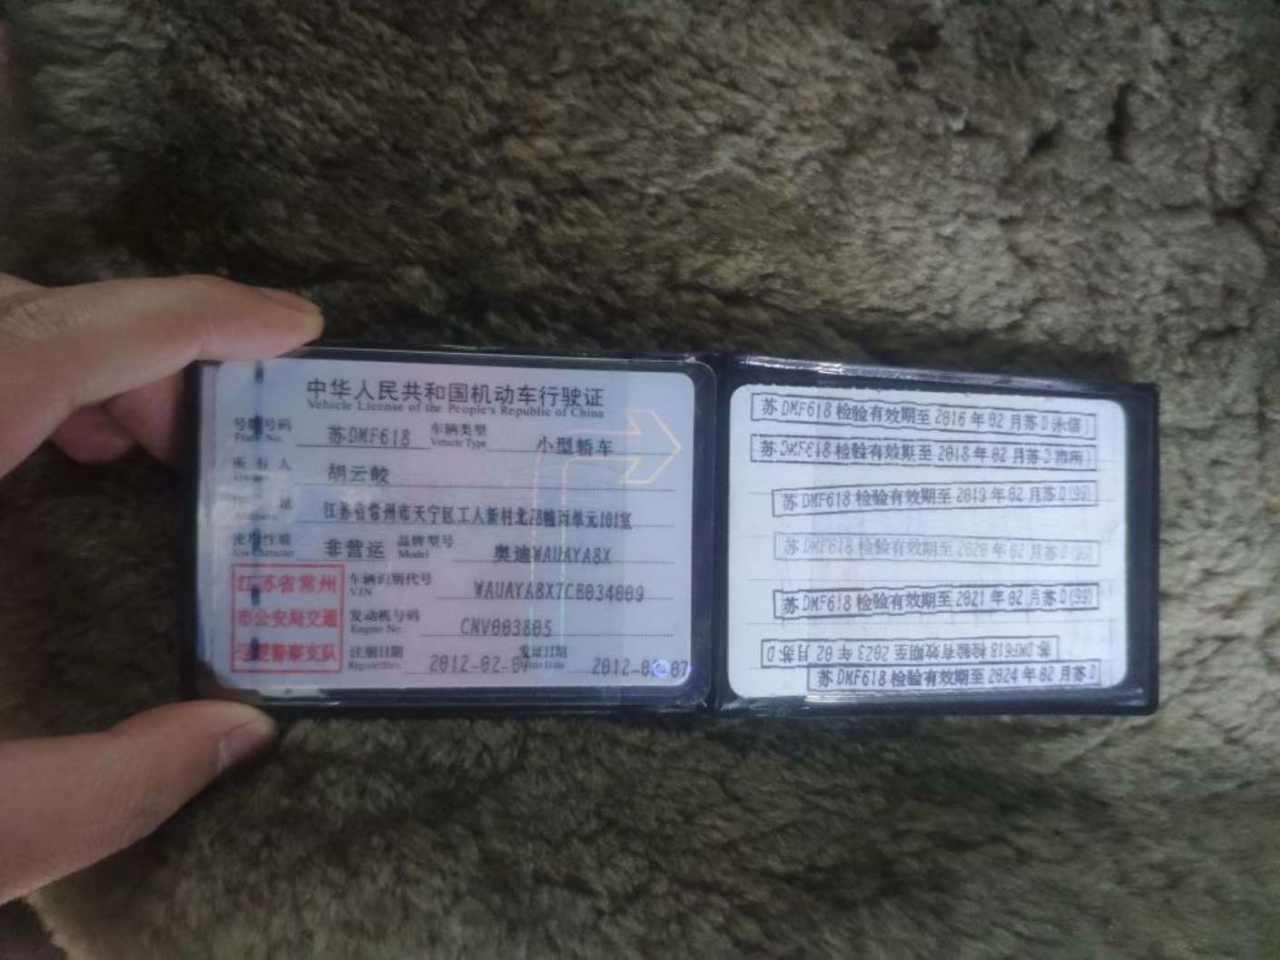 中华人民共和国机动车行驶证
Vehicle License of the People's Republic of China
号牌号码 苏DMF618 车辆类型 小型轿车
Plate No. Vehicle Type
所有人 胡云鲛
住址 江苏省常州市天宁区工人新村北 单元101室
使用性质 非营运 品牌型号 奥迪WAUAYA8X
Use Character Model
江苏省常州
市公安局交通
巡逻警察支队
车辆识别代号 WAUAYA8X7CB034809
VIN
发动机号码 CNV003805
Engine No.
注册日期 2012-02-07 发证日期 2012-02-07
Register Date Issue Date
苏DMF618检验有效期至2016年02月苏D
苏DMF618检验有效期至2018年02月苏D
苏DMF618检验有效期至2019年02月苏D(99)
苏DMF618检验有效期至2020年02月苏D(99)
苏DMF618检验有效期至2021年02月苏D(99)
苏DMF618检验有效期至2023年02月苏D
苏DMF618检验有效期至2024年02月苏D